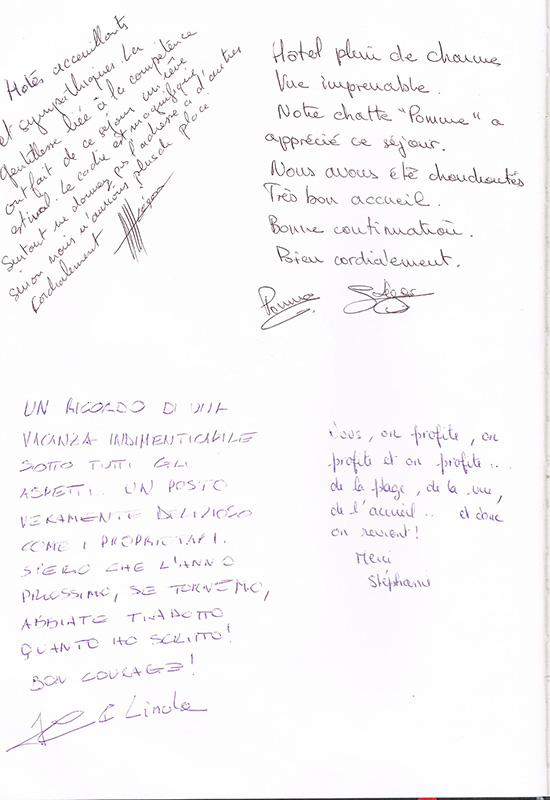 Hotés acceuillants
et sympathiques. La
gentillesse liée à la compétence
ont fait de ce séjour un rêve
estival. Le cadre est magnifique
Surtout ne donnez pas l'adresse à d'autres
sinon nous n'aurions plus de place
Cordialement
Hotel plein de charme
Vue imprenable.
Notre chatte "Pomme" a
apprécié ce séjour.
Nous avons été chouchoutés
Très bon accueil.
Bonne continuation.
Bien cordialement.
Pomme
UN RICORDO DI UNA
VACANZA INDIMENTICABILE
SOTTO TUTTI GLI
ASPETTI.. UN POSTO
VERAMENTE DELIZIOSO
COME I PROPRIETARI.
SPERO CHE L'ANNO
PROSSIMO, SE TORNEMO,
ABBIATE TRADOTTO
QUANTO HO SCRITTO!
BON COURAGE!
Linda
Nous, on profite, on
profite et on profite...
de la plage, de la vue,
de l'accueil.. et donc
on revient!
Merci
Stéphanie